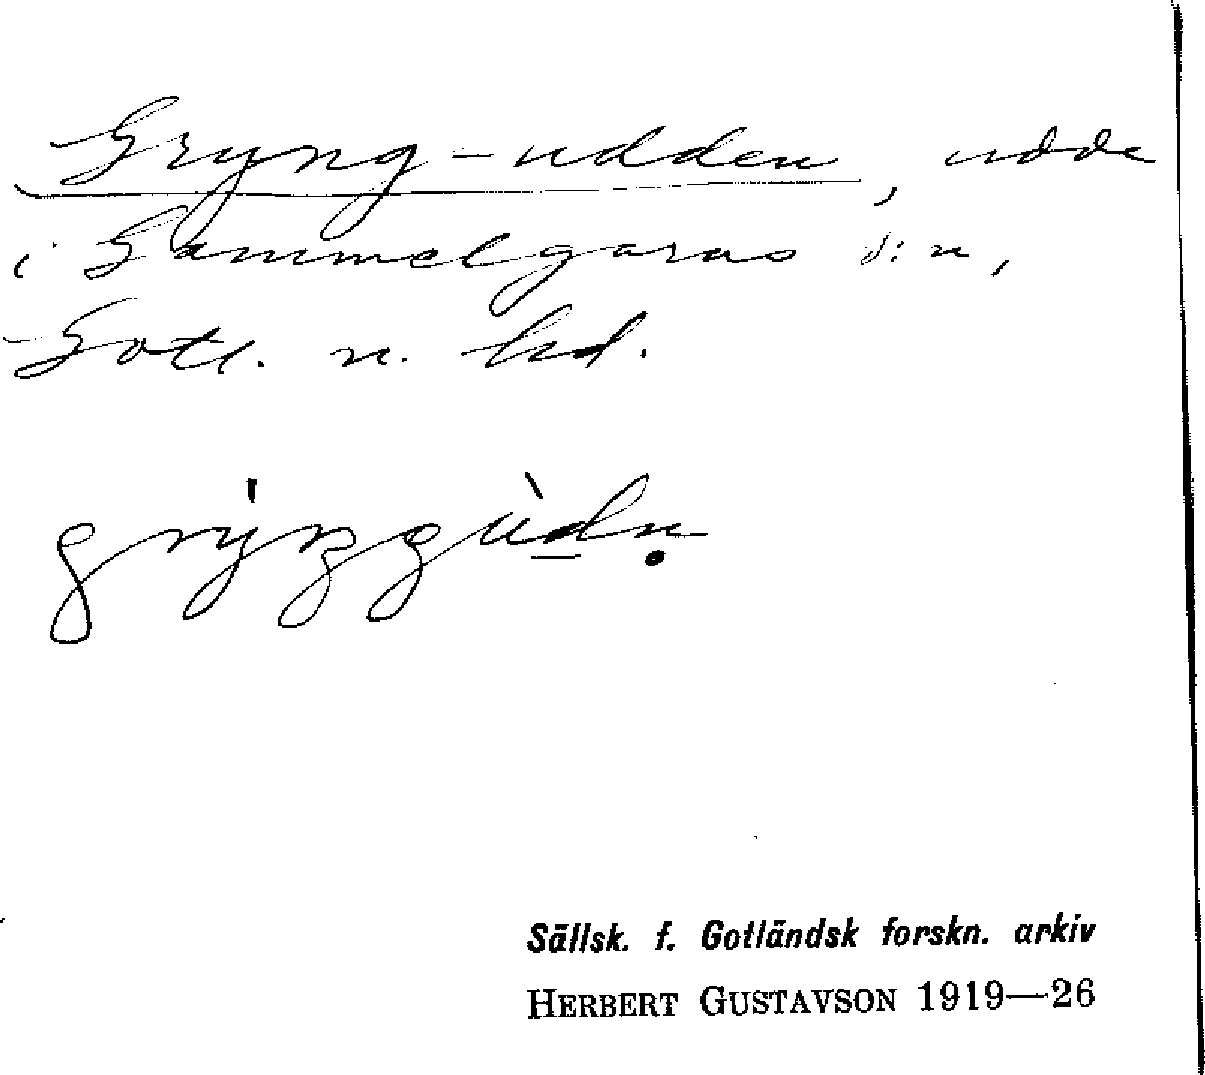 Gryng-udden, udde
i Gammelgarns s:n,
Gotl. n. hd.
grýŋgùdṇ
Sällsk. f. Gotländsk forskn. arkiv
HERBERT GUSTAVSON 1919—26